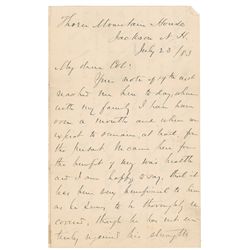 Thorn Mountain House
Jackson N.H.
July 23/83
My dear Col:
Your note of 19th inst
reached me here to day, where
with my family I have been
over a month and where we
expect to remain, at least, for
the present. We came here for
the benefit of my wife's health
and I am happy to say, that it
has been very beneficial to him
as he seems to be thoroughly re-
covered, though he has not en-
tirely regained his strength